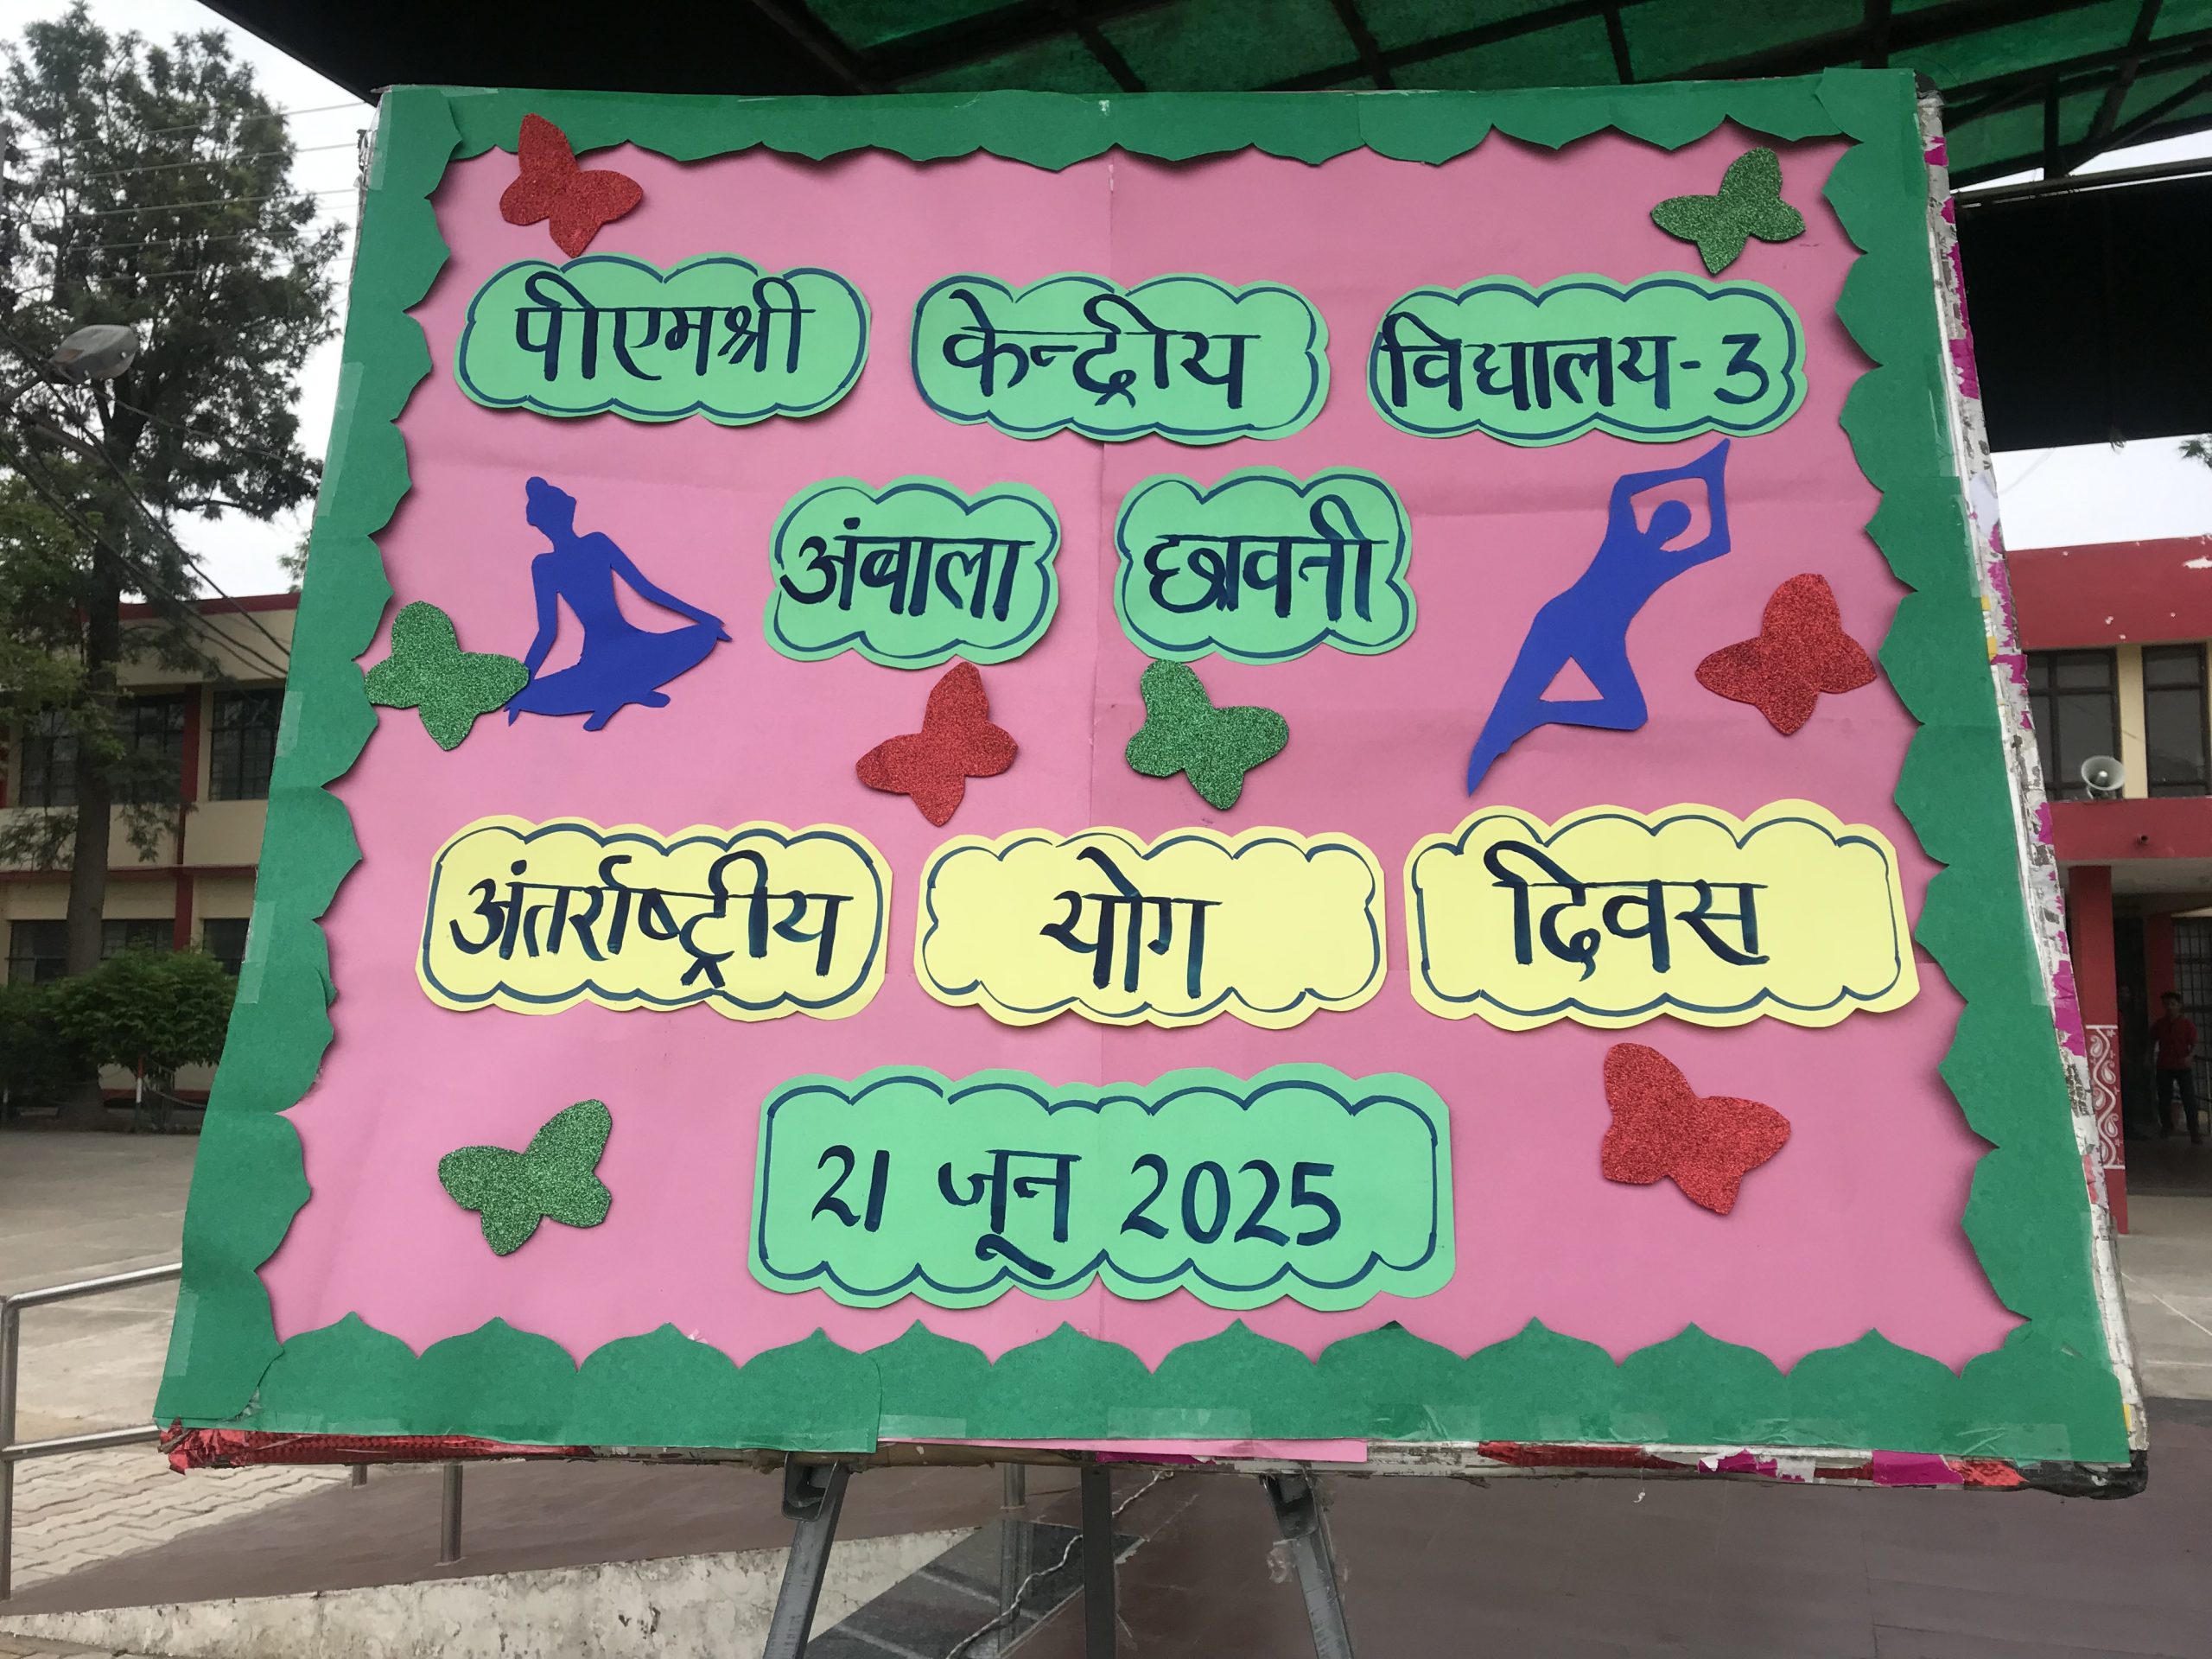 पीएमश्री केन्द्रीय विद्यालय-3
अंबाला छावनी
अंतर्राष्ट्रीय योग दिवस
21 जून 2025